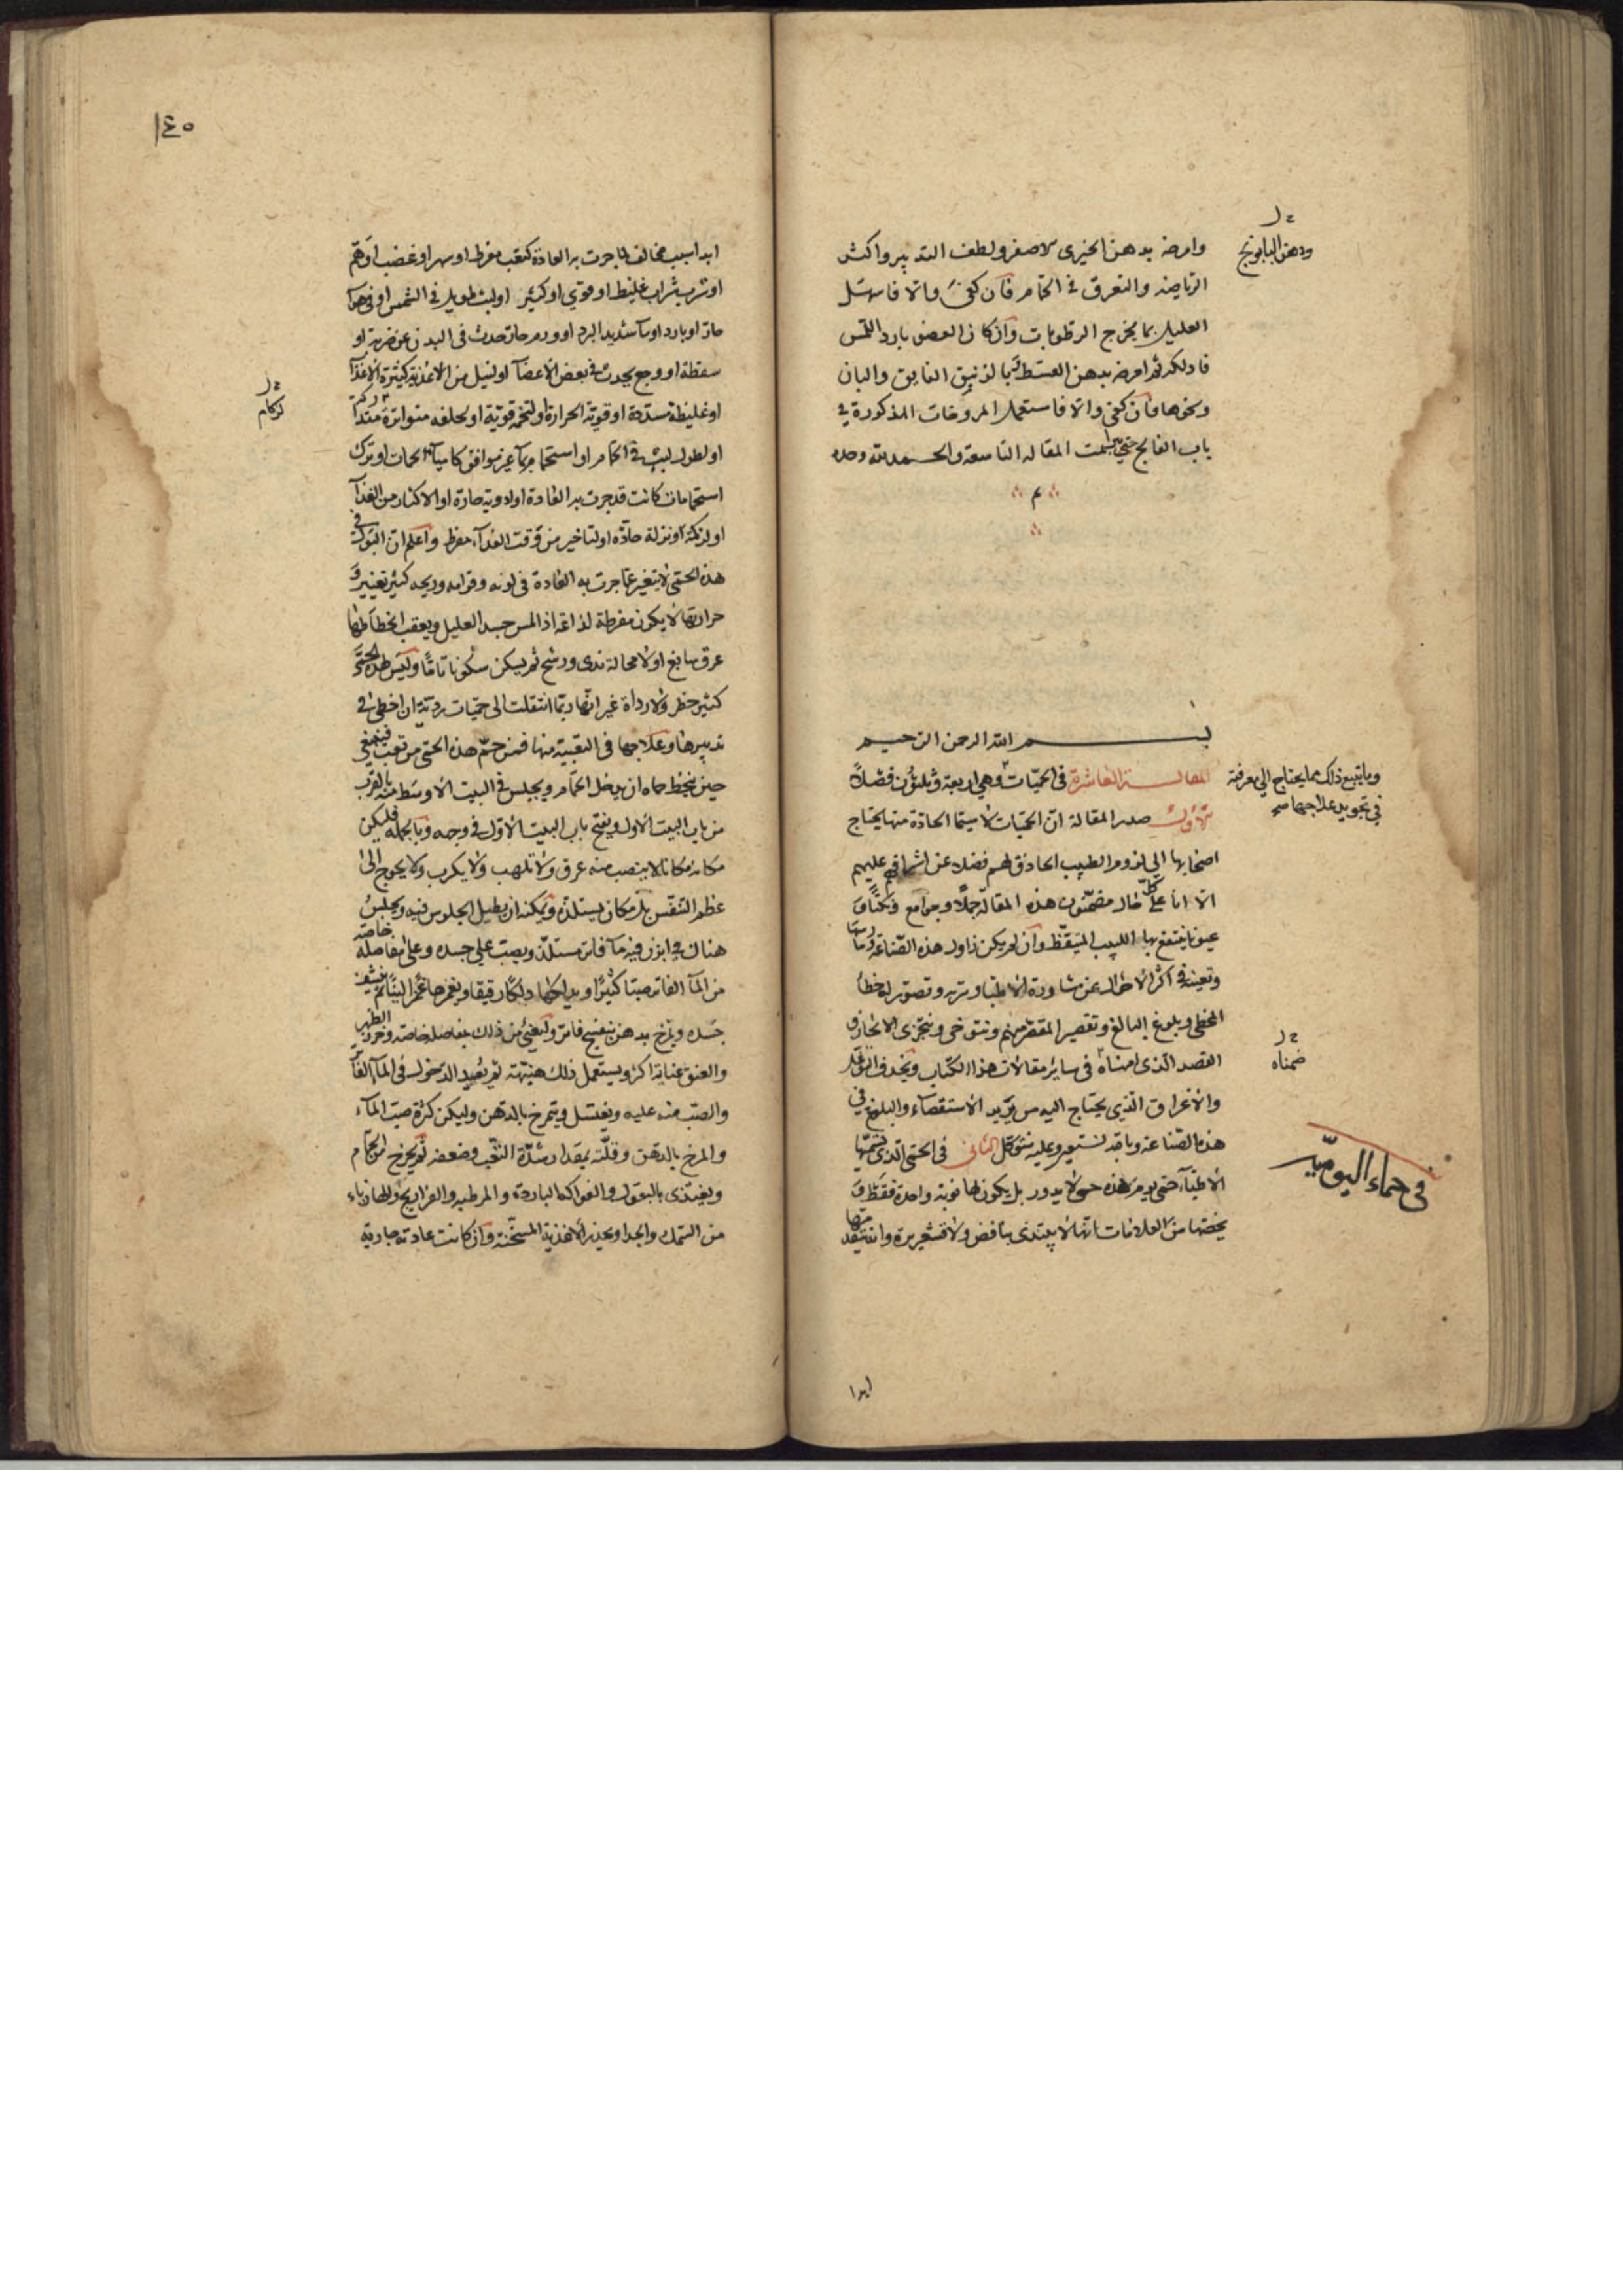 وامرخه بدهن الخيرى الاصفر ولطف التدبير واكثر
الرياضه والتعرق في الحمام فان كفى والا فاسهل
العليل بما يخرج الرطوبات وان كان العضو بارد اللمس
فادلكه ثم امرخه بدهن القسط وبالزنبق الفايق والبان
ونحوها فان كفى والا فاستعمل المروخات المذكورة في
باب الفالج تمت المقاله التاسعة والحمد لله وحده
م
ودهن البابونج
بسم الله الرحمن الرحيم
المقالة العاشرة في الحميات وهي اربعة وثلثون فصلاً
وما يتبع ذلك مما يحتاج الي معرفته
في تجويد علاجها صح
الاول صدر المقالة ان الحميات لا سيما الحادة منها يحتاج
اصحابها الي لزوم الطبيب الحاذق لهم فضلا عن اشرافهم عليهم
الا انا علي كل حال مضمنون هذه المقالة جملاً وجوامع ونكتاً و
عيونا ينتفع بها اللبيب المتيقظ وان لم يكن زاول هذه الصناعة
وتعينه في اكثر الاحوال عن مشاورة الاطباء وتريه وتصور له خطأ
المخطي وبلوغ البالغ وتقصير المقصر منهم ونتوخى ونتحرى الايجاز و
القصد الذى امناه في ساير مقالات هذا الكتاب ونحذف التوغل
ضمناه
والاغراق الذي يحتاج اليه من يريد الاستقصاء والبلوغ في
هذه الصناعة وبالله نستعين وعليه نتوكل الثانى في الحمى الذى تسميها
في حماء اليوميه
الاطباء حمى يوم هذه حمى لا يدور بل يكون لها نوبة واحدة فقط و
يخصها من العلامات انها لا يبتدى بنافض ولا قشعريرة وانه يتقدمها
ابدا
١٤٠
ابدا سبب مخالف لما جرت به العادة كتعب مفرط او سهر او غضب او هم
او شرب شراب غليظ او قوي او كثير او لبث طويل في الشمس او في هوآ
حار او بارد او مآ شديد البرد او ورم حار حدث في البدن عن ضربة او
سقطة او وجع يحدث في بعض الاعضآ او لنيل من الاغذية كثيرة الاغذآ
او غليظة سددة او قوية الحرارة او لتخمة قوية او لخلفه متواترة
لزكام
او لطول لبث في الحمام او استحمام بمآ غير موافق كامياه الحمات او ترك
استحمامات كانت قد جرت به العادة او ادوية حارة او الاكثار من الغذآ
او لزكمة او نزلة حادة او لتاخير من وقت الغدآء مفرط واعلم ان البول في
هذه الحمى لا يتغير عما جرت به العادة في لونه وقوامه وريحه كثير تغيير و
حرارتها لا يكون مفرطة لذاعة اذا لمس جسد العليل ويعقب انحطاطها
عرق سابغ او لا محالة ندى ورشح ثم يسكن سكونا تاما وليس لهذه الحمى
كثير خطر ولا رداة غير انها ربما انتقلت الى حميات ردية ان اخطئ في
تدبيرها وعلاجها في البقية منها فمن حم هذه الحمى من تعب فينبغي
حين ينحط حماه ان يدخل الحمام ويجلس في البيت الاوسط منه بالقرب
من باب البيت الاول ويفتح باب البيت الاول في وجهه وبالجملة فليكن
مكانه مكانا لا ينصب منه عرق ولا تلهب ولا يكرب ولا يحوج الى
عظم التنفس بل مكان يستلذه ويمكنه ان يطيل الجلوس فيه ويجلس
هناك في ابزن فيه مآ فاتر مستلذ ويصب علي جسده وعلى مفاصله خاصة
من المآ الفاتر صبا كثيرًا ويدلكها دلكًا رقيقا ويغمزها غمزا لينًا ثم ينشف
جسده ويمرخ بدهن بنفسج فاتر ولتعني من ذلك بمفاصله خاصة وخرز الظهر
والعنق عناية اكثر ويستعمل ذلك هنيهة ثم يعيد الدخول في المآ الفاتر
والصب منه عليه ويغتسل ويتمرخ بالدهن وليكن كثرة صب المآء
والمرخ بالدهن وقلته بمقدار شدة التعب وضعفه ثم يخرج من الحمام
ويغتذى بالبقول والفواكه الباردة والمرطبه والفراريج والهازباء
من السمك والجدا ويحذر الاغذية المسخنة وان كانت عادته جارية